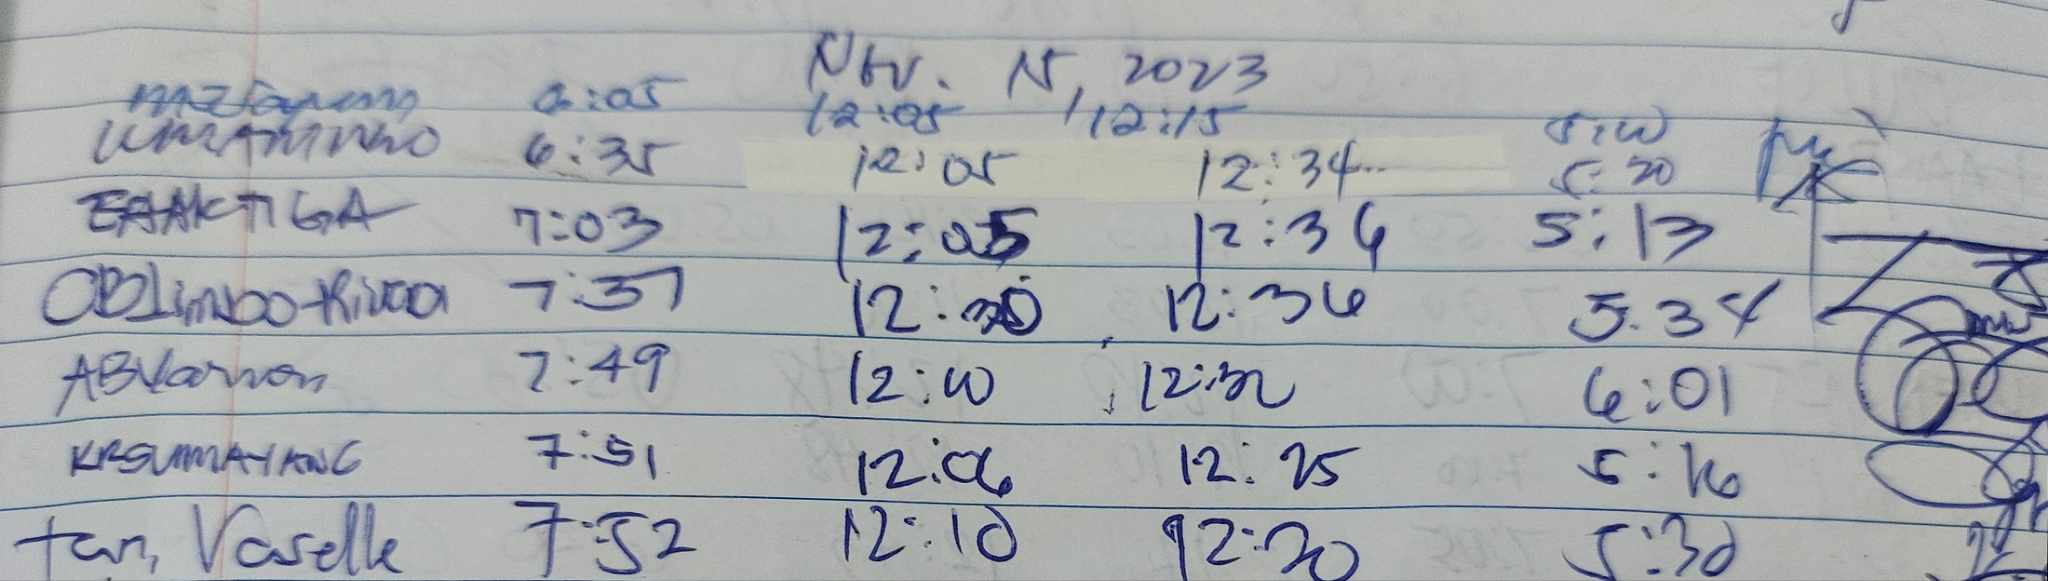 Nov. 15, 2023
6:05 12:05 12:15 5:10
6:35 12:05 12:34 5:20
EAAKTIGA 7:03 12:05 12:36 5:13
OBLimbo-Rivera 7:37 12:30 12:36 5:34
7:49 12:10 12:32 6:01
KRSUMAYANG 7:51 12:06 12:25 5:16
tan, Vaselle 7:52 12:10 12:30 5:30